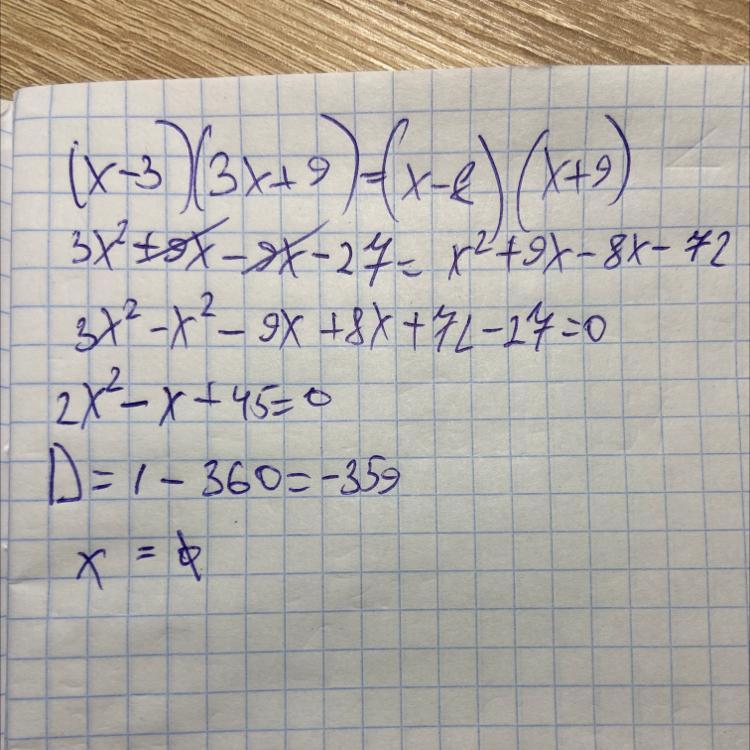 (x-3)(3x+9)=(x-8)(x+9)
3x²+9x-9x-27=x²+9x-8x-72
3x²-x²-9x+8x+72-27=0
2x²-x+45=0
D=1-360=-359
x=ϕ